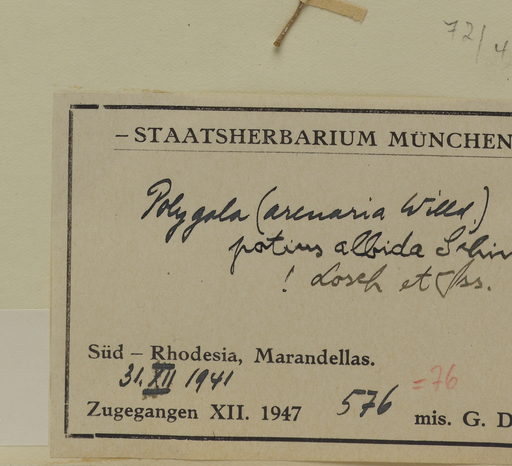 72/4
– STAATSHERBARIUM MÜNCHEN
Polygala (arenaria Willd.)
potius albida Schin
! Losch et
Süd – Rhodesia, Marandellas.
31. XII 1941
= 76
Zugegangen XII. 1947 576 mis. G. D